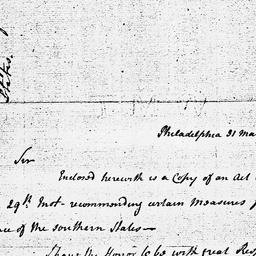 States.
Philadelphia 31 Ma
Sir
Enclosed herewith is a Copy of an Act
29th Inst. recommending certain measures f
nce of the southern States—
I have the Honor to be with great Resp